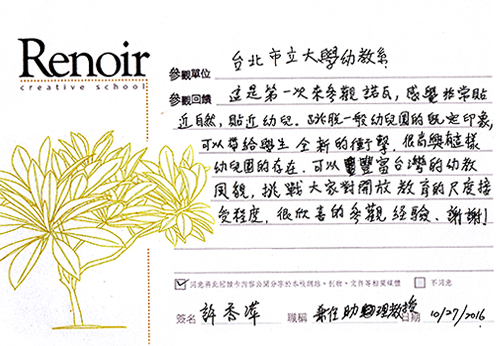 Renoir
creative school
參觀單位 台北市立大學幼教系
參觀回饋 這是第一次來參觀諾瓦，感覺非常貼
近自然，貼近幼兒。跳脫一般幼兒園的既定印象，
可以帶給學生全新的衝擊，很高興有這樣
幼兒園的存在，可以豐富台灣的幼教
風貌，挑戰大家對開放教育的尺度接
受程度，很欣喜的參觀經驗、謝謝！
同意將此回饋內容公開分享於本校網站、刊物、文件等相關媒體 不同意
簽名 許 職稱 兼任助理教授 日期 10/27/2016